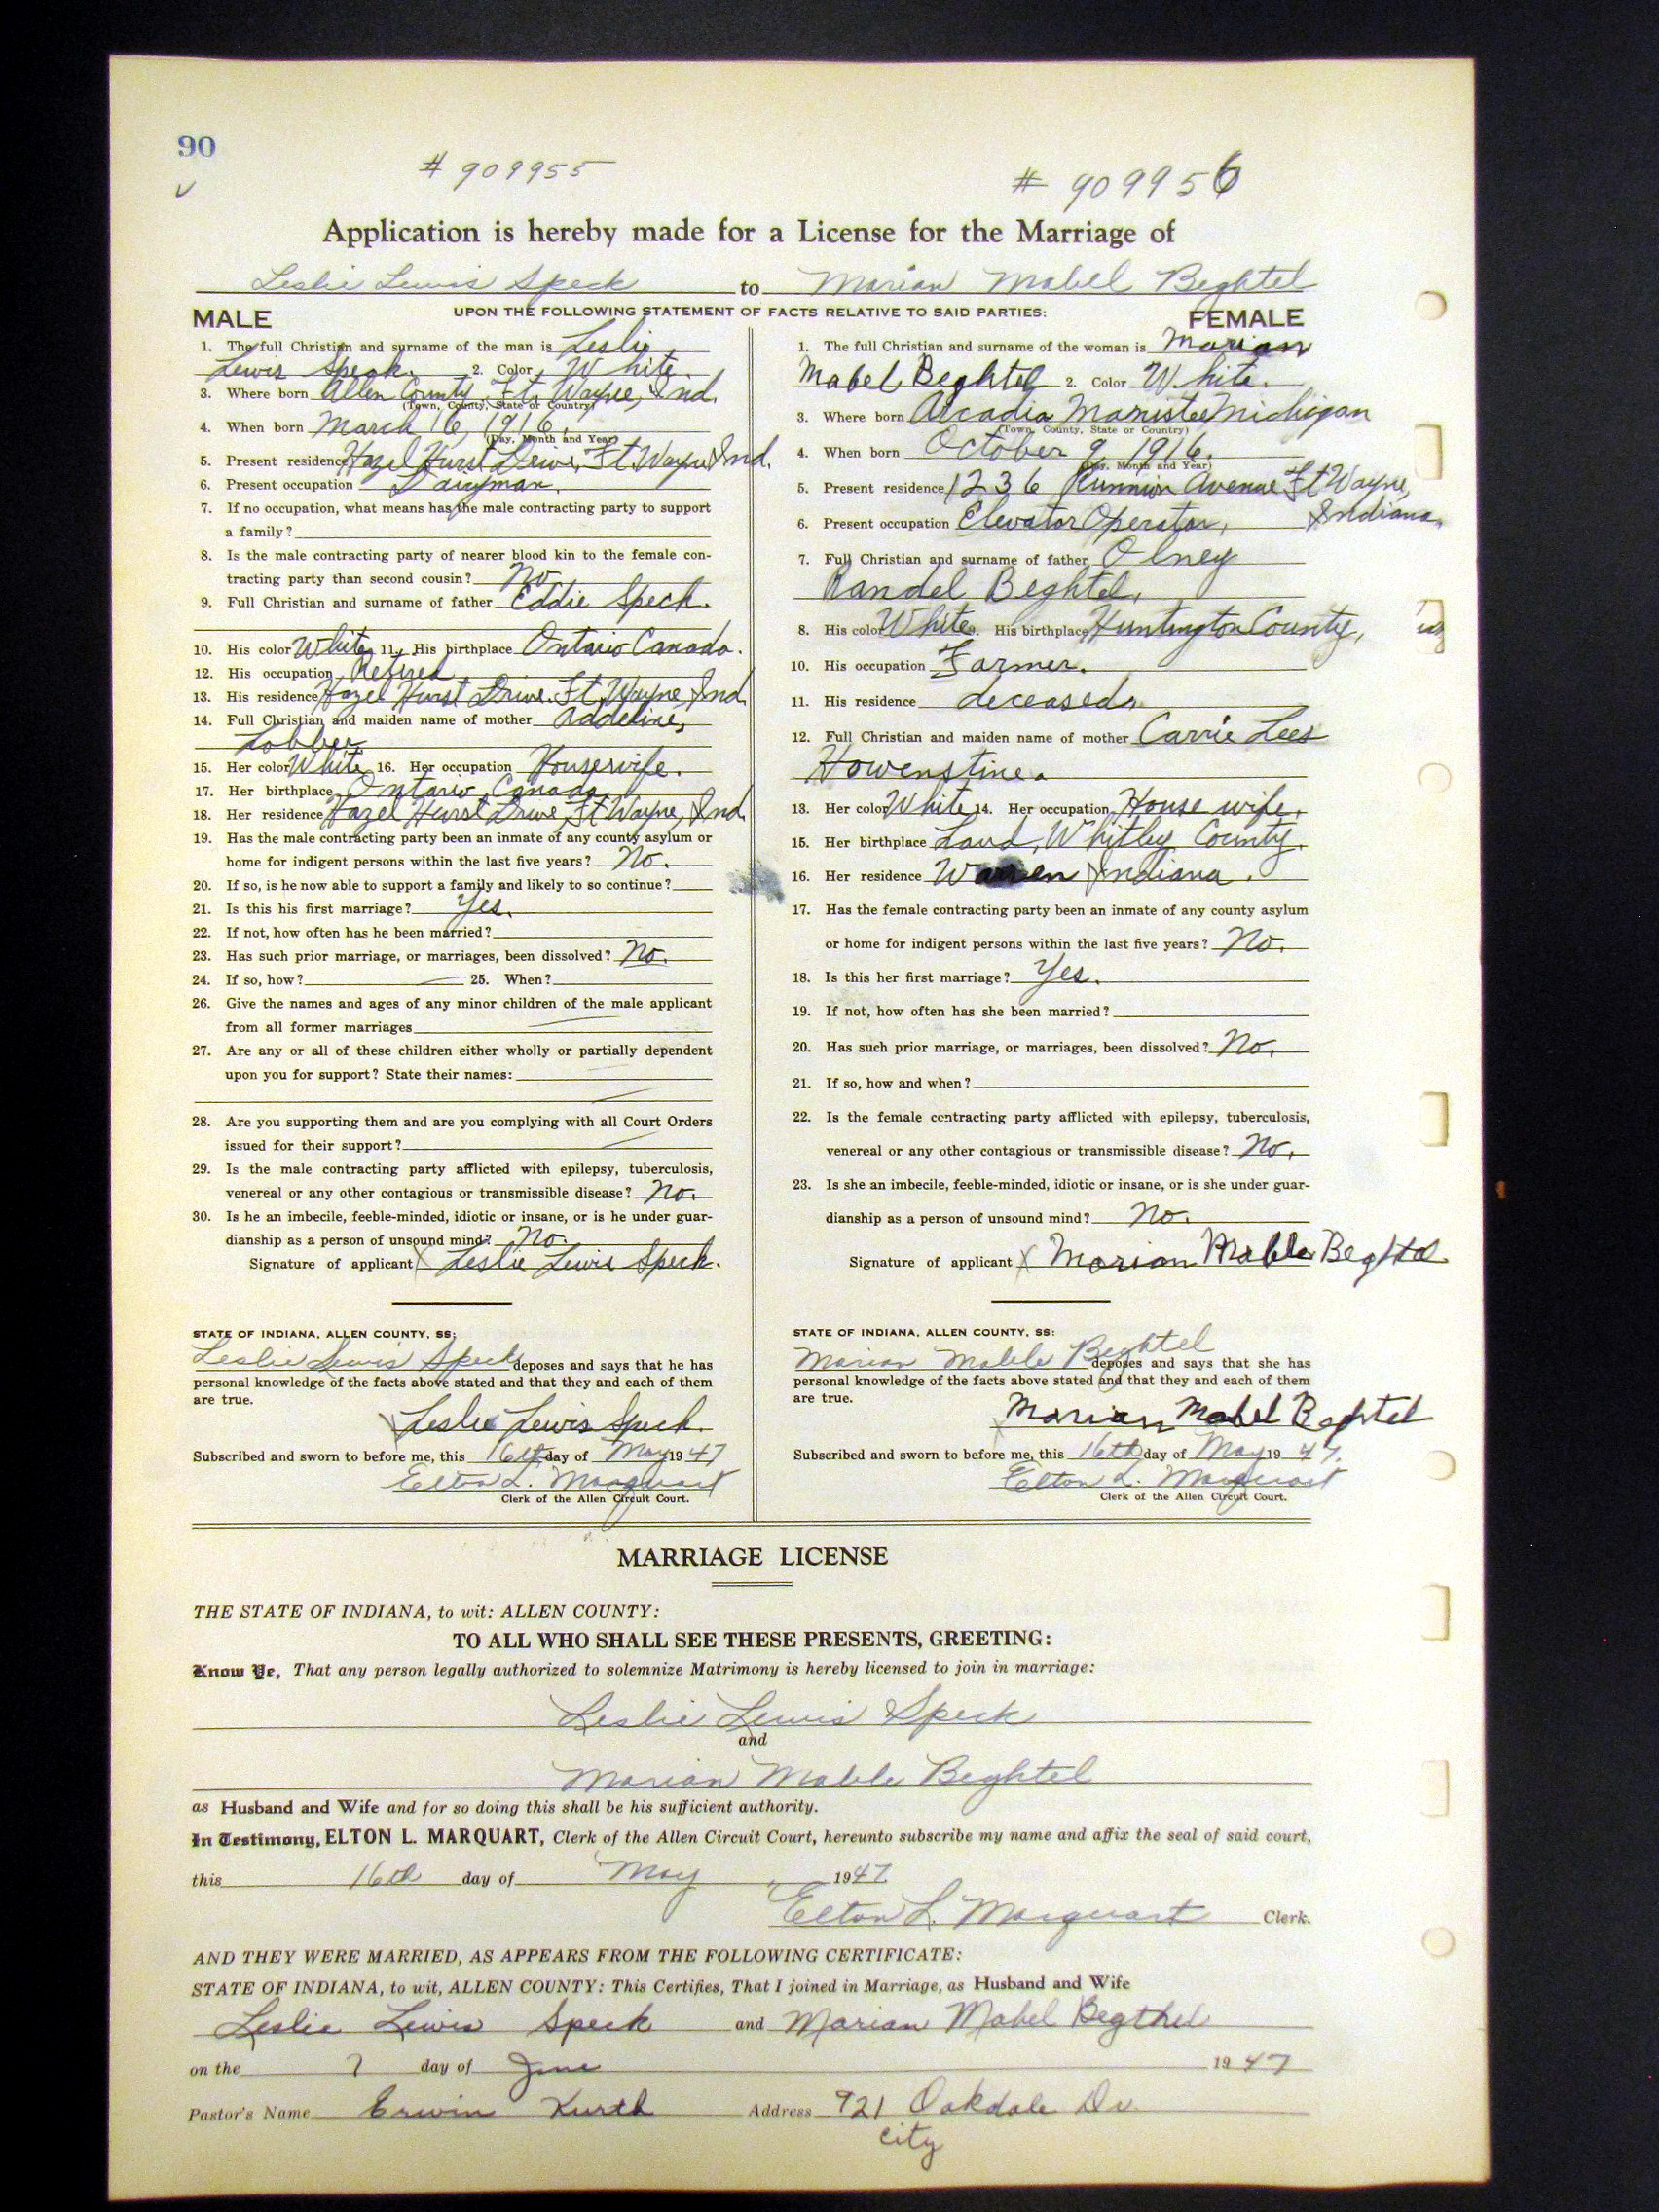 90
# 909955
# 909956
Application is hereby made for a License for the Marriage of
Leslie Lewis Speck to Marian Mabel Beghtel
UPON THE FOLLOWING STATEMENT OF FACTS RELATIVE TO SAID PARTIES:
MALE
1. The full Christian and surname of the man is Leslie
Lewis Speck. 2. Color White.
3. Where born Allen County, Ft. Wayne, Ind.
(Town, County, State or Country)
4. When born March 16, 1916.
(Day, Month and Year)
5. Present residence Hazel Hurst Drive, Ft. Wayne Ind.
6. Present occupation Dairyman.
7. If no occupation, what means has the male contracting party to support
a family?
8. Is the male contracting party of nearer blood kin to the female con-
tracting party than second cousin? No
9. Full Christian and surname of father Eddie Speck.
10. His color White 11. His birthplace Ontario Canada.
12. His occupation Retired
13. His residence Hazel Hurst Drive. Ft Wayne, Ind
14. Full Christian and maiden name of mother Addeline,
15. Her color White 16. Her occupation Housewife.
17. Her birthplace Ontario, Canada
18. Her residence Hazel Hurst Drive, Ft Wayne, Ind
19. Has the male contracting party been an inmate of any county asylum or
home for indigent persons within the last five years? No.
20. If so, is he now able to support a family and likely to so continue?
21. Is this his first marriage? Yes.
22. If not, how often has he been married?
23. Has such prior marriage, or marriages, been dissolved? No.
24. If so, how? 25. When?
26. Give the names and ages of any minor children of the male applicant
from all former marriages
27. Are any or all of these children either wholly or partially dependent
upon you for support? State their names:
28. Are you supporting them and are you complying with all Court Orders
issued for their support?
29. Is the male contracting party afflicted with epilepsy, tuberculosis,
venereal or any other contagious or transmissible disease? No.
30. Is he an imbecile, feeble-minded, idiotic or insane, or is he under guar-
dianship as a person of unsound mind? No.
Signature of applicant X Leslie Lewis Speck.
STATE OF INDIANA, ALLEN COUNTY, SS:
Leslie Lewis Speck deposes and says that he has
personal knowledge of the facts above stated and that they and each of them
are true.
Leslie Lewis Speck.
Subscribed and sworn to before me, this 16th day of May 1947
Elton L. Marquart
Clerk of the Allen Circuit Court.
FEMALE
1. The full Christian and surname of the woman is Marian
Mabel Beghtel 2. Color White.
3. Where born Arcadia Manistee Michigan
(Town, County, State or Country)
4. When born October 9 1916.
(Day, Month and Year)
5. Present residence 1236 Runnion Avenue Ft Wayne,
Indiana,
6. Present occupation Elevator Operator,
7. Full Christian and surname of father Olney
Randel Beghtel,
8. His color White. His birthplace Huntington County,
10. His occupation Farmer.
11. His residence deceased.
12. Full Christian and maiden name of mother Carrie Lees
Howenstine.
13. Her color White 14. Her occupation House wife.
15. Her birthplace Laud, Whitley County.
16. Her residence Warren Indiana.
17. Has the female contracting party been an inmate of any county asylum
or home for indigent persons within the last five years? No.
18. Is this her first marriage? Yes.
19. If not, how often has she been married?
20. Has such prior marriage, or marriages, been dissolved? No.
21. If so, how and when?
22. Is the female contracting party afflicted with epilepsy, tuberculosis,
venereal or any other contagious or transmissible disease? No.
23. Is she an imbecile, feeble-minded, idiotic or insane, or is she under guar-
dianship as a person of unsound mind? No.
Signature of applicant X Marian Mable Beghtel
STATE OF INDIANA, ALLEN COUNTY, SS:
Marian Mable Beghtel deposes and says that she has
personal knowledge of the facts above stated and that they and each of them
are true.
Marian Mabel Beghtel
Subscribed and sworn to before me, this 16th day of May 1947.
Elton L. Marquart
Clerk of the Allen Circuit Court.
MARRIAGE LICENSE
THE STATE OF INDIANA, to wit: ALLEN COUNTY:
TO ALL WHO SHALL SEE THESE PRESENTS, GREETING:
Know Ye, That any person legally authorized to solemnize Matrimony is hereby licensed to join in marriage:
Leslie Lewis Speck
and
Marian Mable Beghtel
as Husband and Wife and for so doing this shall be his sufficient authority.
In Testimony, ELTON L. MARQUART, Clerk of the Allen Circuit Court, hereunto subscribe my name and affix the seal of said court,
this 16th day of May 1947
Elton L. Marquart Clerk.
AND THEY WERE MARRIED, AS APPEARS FROM THE FOLLOWING CERTIFICATE:
STATE OF INDIANA, to wit, ALLEN COUNTY: This Certifies, That I joined in Marriage, as Husband and Wife
Leslie Lewis Speck and Marian Mabel Begthel
on the 7 day of June 1947
Pastor's Name Erwin Kurth Address 921 Oakdale Dr.
City